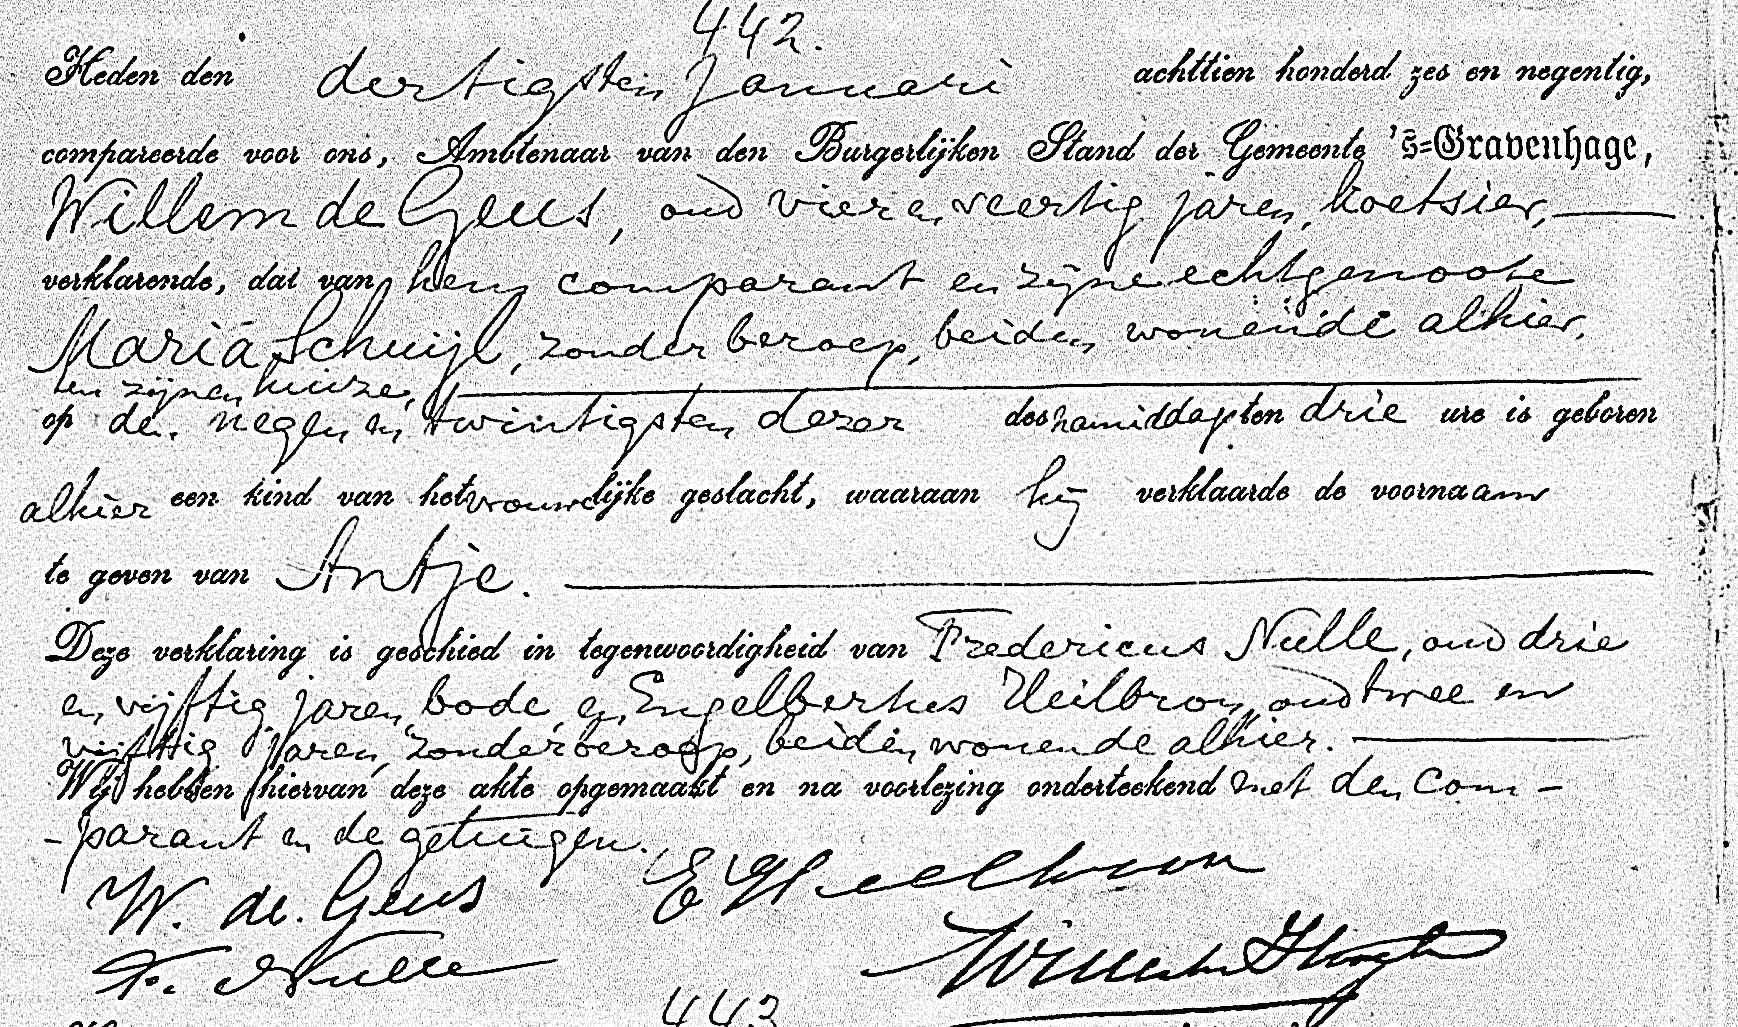 442.
Heden den dertigsten Januari achttien honderd zes en negentig,
compareerde voor ons, Ambtenaar van den Burgerlijken Stand der Gemeente 's-Gravenhage,
Willem de Geus, oud vier en veertig jaren, koetsier,
verklarende, dat van hem comparant en zijne echtgenoote
Maria Schuijl, zonder beroep, beiden wonende alhier,
ten zijnen huize,
op den negen en twintigsten dezer des namiddags ten drie ure is geboren
alhier een kind van het vrouwelijke geslacht, waaraan hij verklaarde de voornaam
te geven van Antje.
Deze verklaring is geschied in tegenwoordigheid van Fredericus Nulle, oud drie
en vijftig jaren, bode, en Engelbertus Heilbron, oud twee en
vijftig jaren, zonder beroep, beiden wonende alhier.
Wij hebben hiervan deze akte opgemaakt en na voorlezing onderteekend met den com-
-parant en de getuigen.
W. de Geus E Heilbron
F. Nulle
443